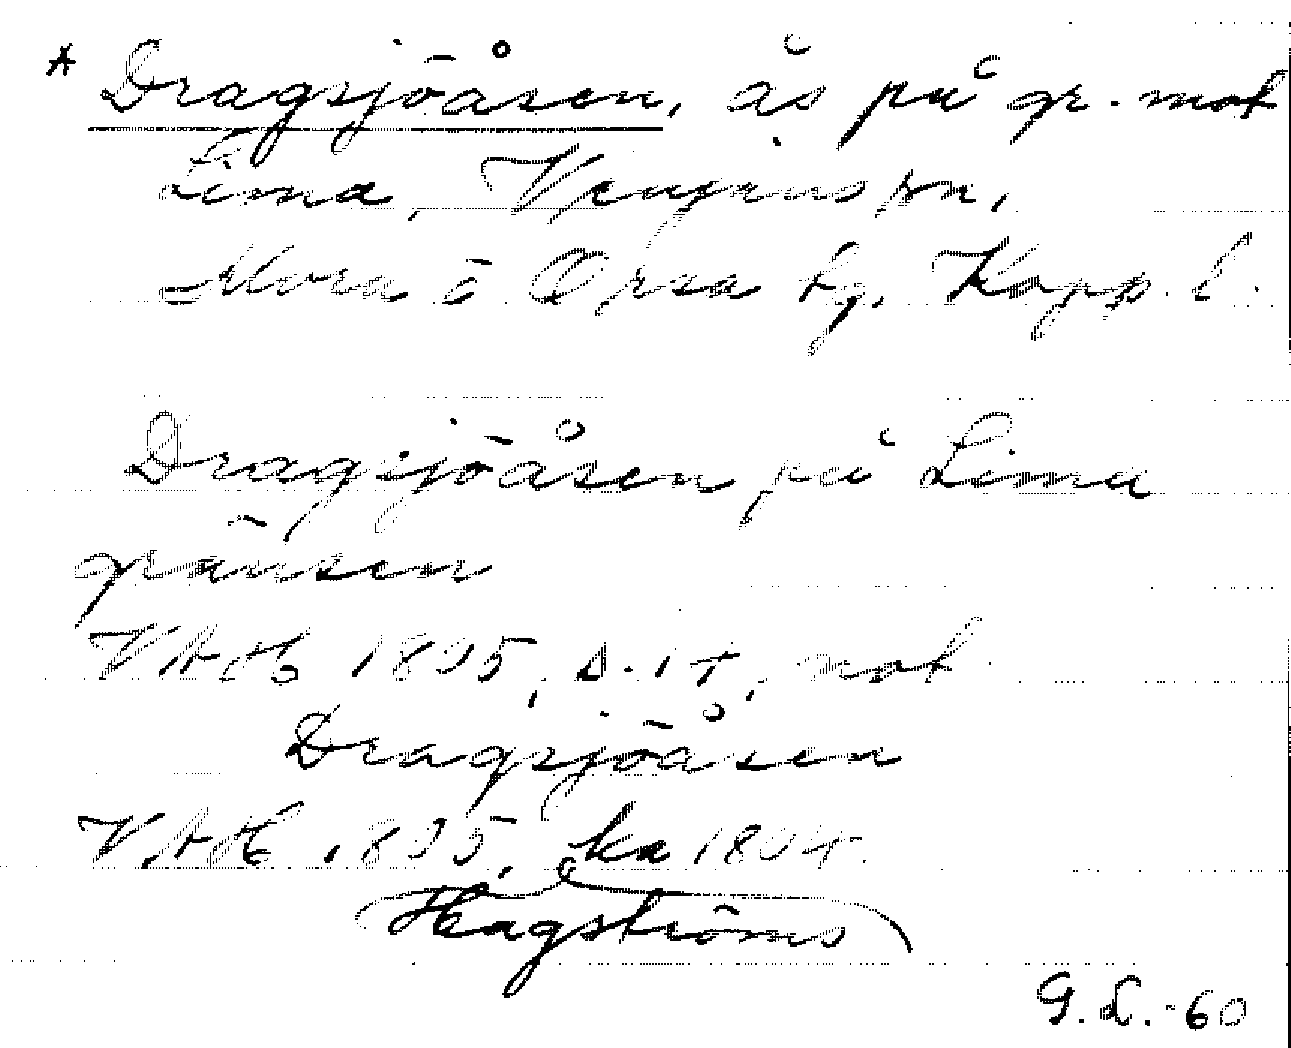 * Dragsjöåsen, ås på gr. mot
Lima, Venjans sn,
Mora o Orsa tg. Kopp. l.
Dragsjöåsen på Lima
gränsen
VAH 1895, s. 14, not
Dragsjöåsen
VAH 1895, ka 1804.
Hagströms
G. L. -60